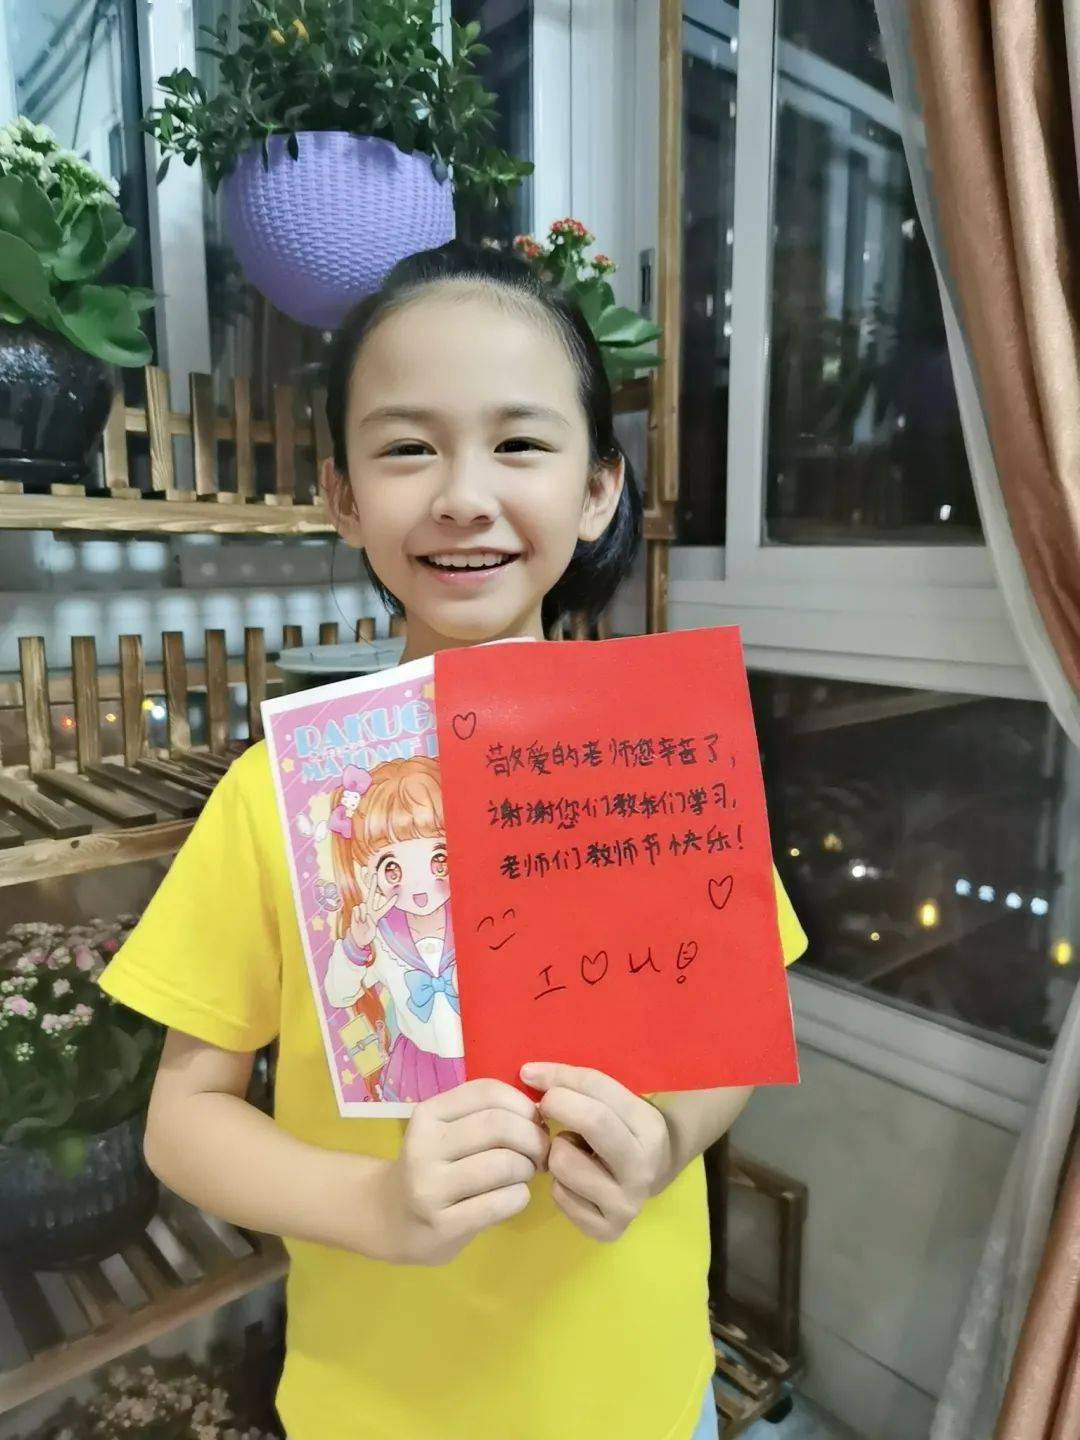 RAKUG
MATOME
敬爱的老师您辛苦了，
谢谢您们教我们学习，
老师们教师节快乐！
I ♡ U